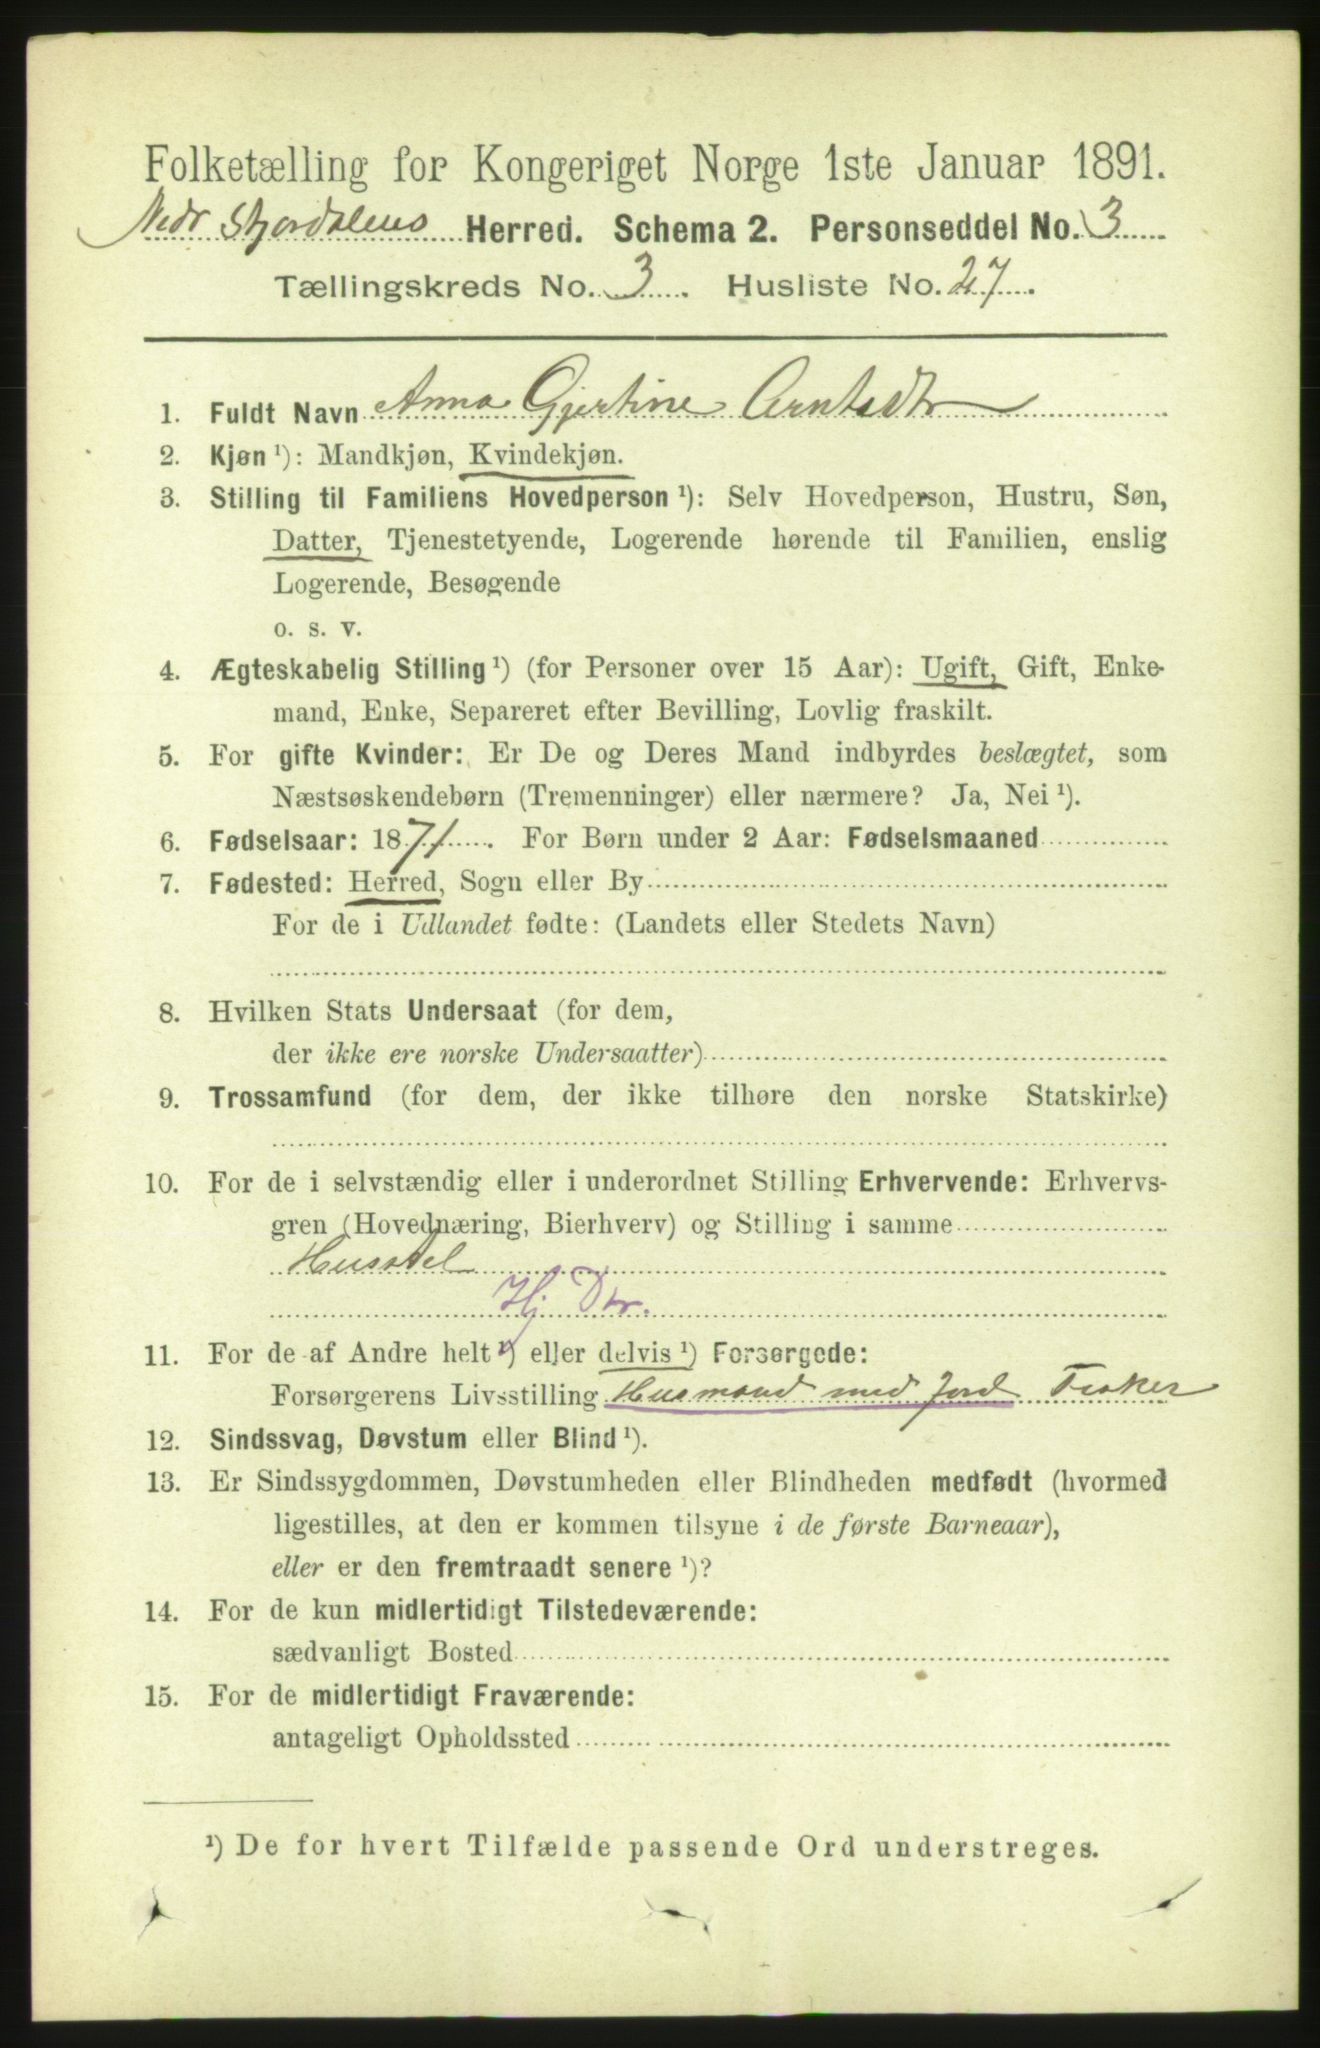 Folketælling for Kongeriget Norge 1ste Januar 1891.
Nedr Stjordalens Herred. Schema 2. Personseddel No. 3
Tællingskreds No. 3. Husliste No. 27.
1. Fuldt Navn Anna Gjertine Arntsdtr
2. Kjøn ¹): Mandkjøn, Kvindekjøn.
3. Stilling til Familiens Hovedperson ¹): Selv Hovedperson, Hustru, Søn,
Datter, Tjenestetyende, Logerende hørende til Familien, enslig
Logerende, Besøgende
o. s. v.
4. Ægteskabelig Stilling ¹) (for Personer over 15 Aar): Ugift, Gift, Enke-
mand, Enke, Separeret efter Bevilling, Lovlig fraskilt.
5. For gifte Kvinder: Er De og Deres Mand indbyrdes beslægtet, som
Næstsøskendebørn (Tremenninger) eller nærmere? Ja, Nei ¹).
6. Fødselsaar: 1871. For Børn under 2 Aar: Fødselsmaaned
7. Fødested: Herred, Sogn eller By
For de i Udlandet fødte: (Landets eller Stedets Navn)
8. Hvilken Stats Undersaat (for dem,
der ikke ere norske Undersaatter)
9. Trossamfund (for dem, der ikke tilhøre den norske Statskirke)
10. For de i selvstændig eller i underordnet Stilling Erhvervende: Erhvervs-
gren (Hovednæring, Bierhverv) og Stilling i samme
Husstel
Hj Dtr.
11. For de af Andre helt ¹) eller delvis ¹) Forsørgede:
Forsørgerens Livsstilling Husmand med Jord Fisker
12. Sindssvag, Døvstum eller Blind ¹).
13. Er Sindssygdommen, Døvstumheden eller Blindheden medfødt (hvormed
ligestilles, at den er kommen tilsyne i de første Barneaar),
eller er den fremtraadt senere ¹)?
14. For de kun midlertidigt Tilstedeværende:
sædvanligt Bosted
15. For de midlertidigt Fraværende:
antageligt Opholdssted
¹) De for hvert Tilfælde passende Ord understreges.